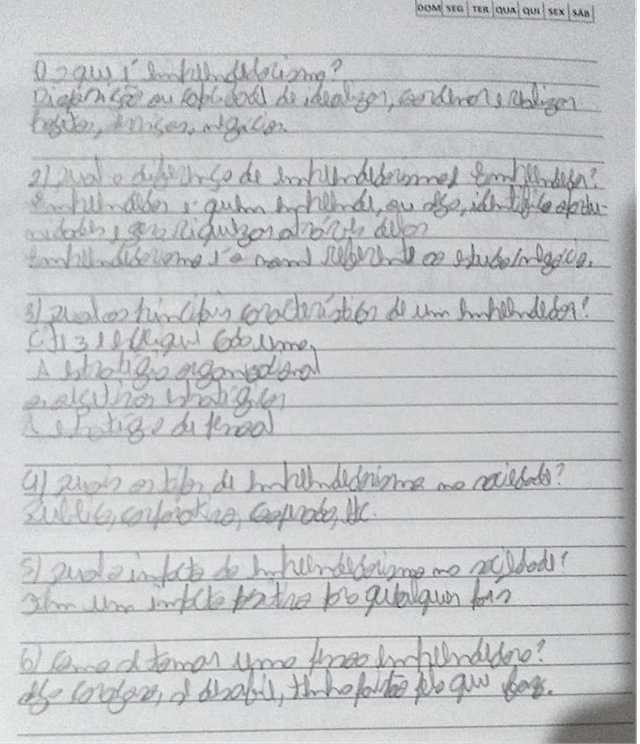 DOM SEG TER QUA QUI SEX SÁB
O que é empreendedorismo?
Disposição ou capacidade de idealizar, coordenar e realizar
projetos, serviços, negócios.
2) Qual a diferença de empreendedorismo e Empreendedor?
Empreendedor é quem empreende, ou seja, identifica oportu-
nidades e gera riquezas através delas
Empreendedorismo é o nome referente ao estudo/negócio.
3) Qual as principais características de um empreendedor?
que cada uma,
A estratégia organizacional
estratégica
A estratégia de
4) Quais os tipos de empreendedorismo na sociedade?
Público, corporativo, etc.
5) Qual o impacto do empreendedorismo na sociedade?
Tem um impacto positivo pro qualquer país
6) Como se tornar uma pessoa empreendedora?
seja corajoso, tenha paixão pelo que faz.